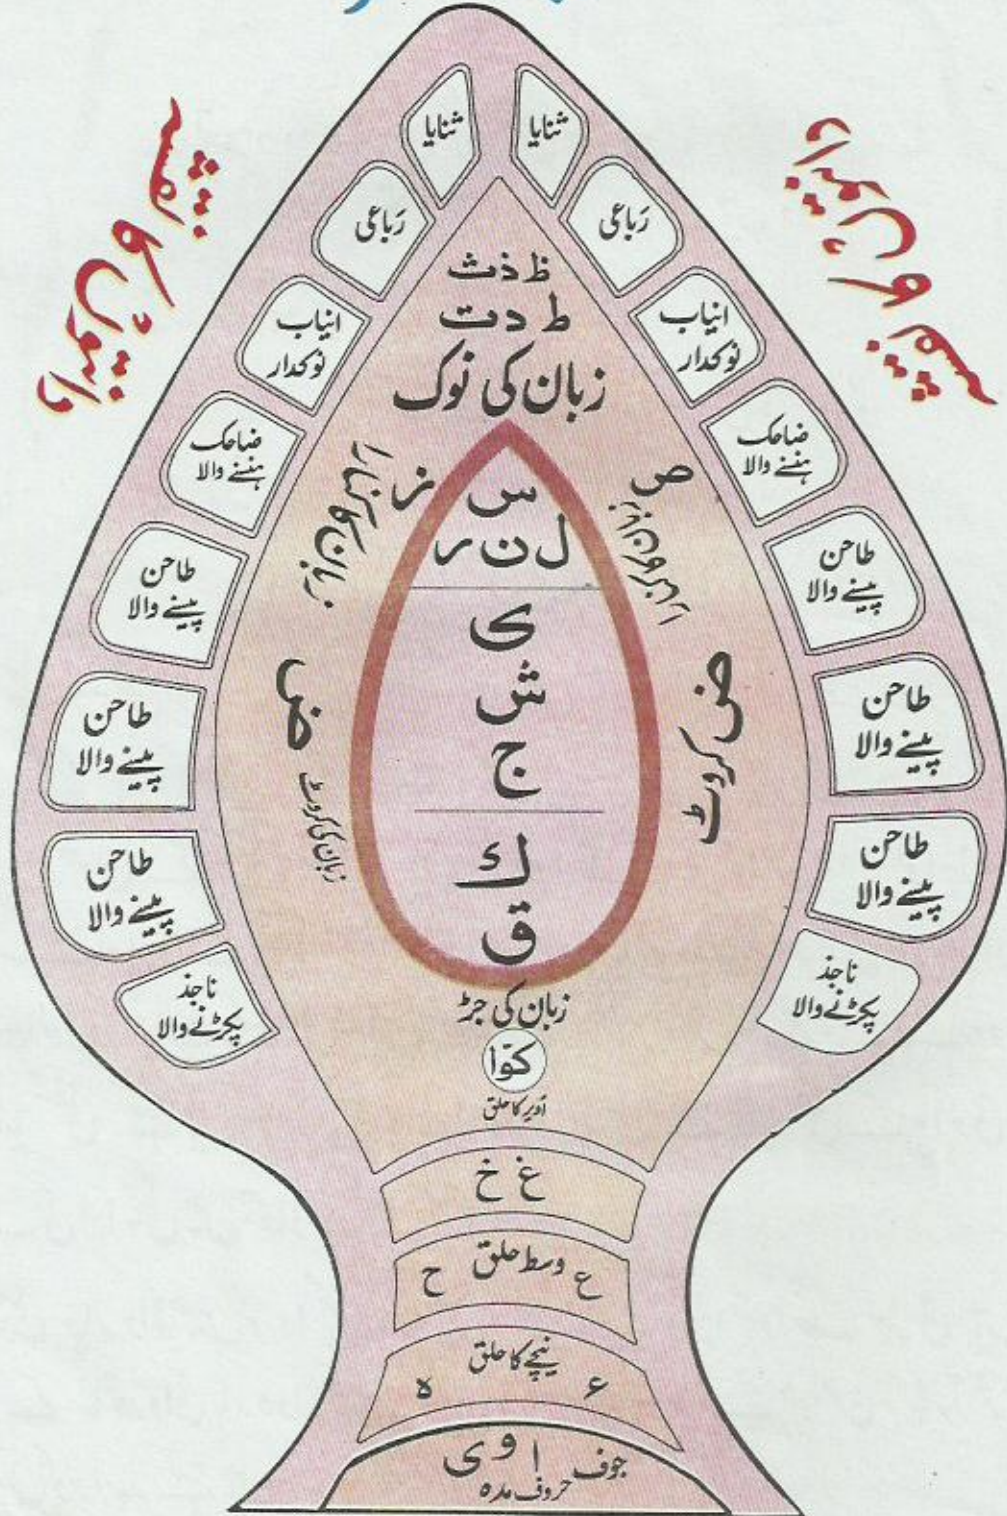 ثنایا
ثنایا
رَباعی
رَباعی
انیاب
نوکدار
انیاب
نوکدار
ضاحک
ہنسنے والا
ضاحک
ہنسنے والا
طاحن
پیسنے والا
طاحن
پیسنے والا
طاحن
پیسنے والا
طاحن
پیسنے والا
طاحن
پیسنے والا
طاحن
پیسنے والا
ناجذ
پکڑنے والا
ناجذ
پکڑنے والا
دانتوں کا نقشہ
ظ ذ ث
ط د ت
زبان کی نوک
ص
ز
س
ل ن ر
ی
ش
ج
ض کروٹ
ض
زبان کی کروٹ
ك
ق
زبان کی جڑ
کوّا
اُوپر کا حلق
غ خ
ع وسط حلق ح
نیچے کا حلق
ء ہ
جوف ا و ی
حروف مدہ